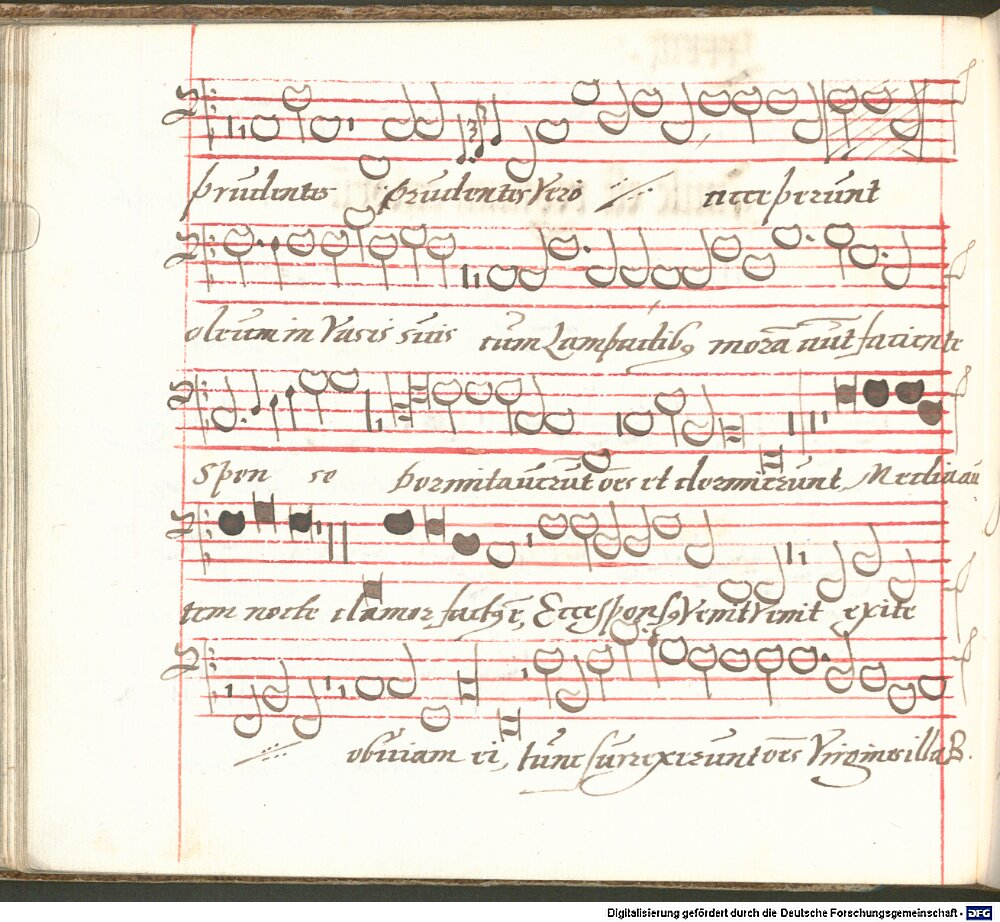 prudentes prudentes vero acceperunt
oleum in vasis suis cum Lampadibꝯ morā aūt faciente
Sponso Dormitaverūt oēs et dormierunt Media au
tem nocte clamor factꝯ ē, Ecce sponsꝯ venit venit exite
obviam ei, tunc surrexerunt oēs Virgines illae
Digitalisierung gefördert durch die Deutsche Forschungsgemeinschaft - DFG